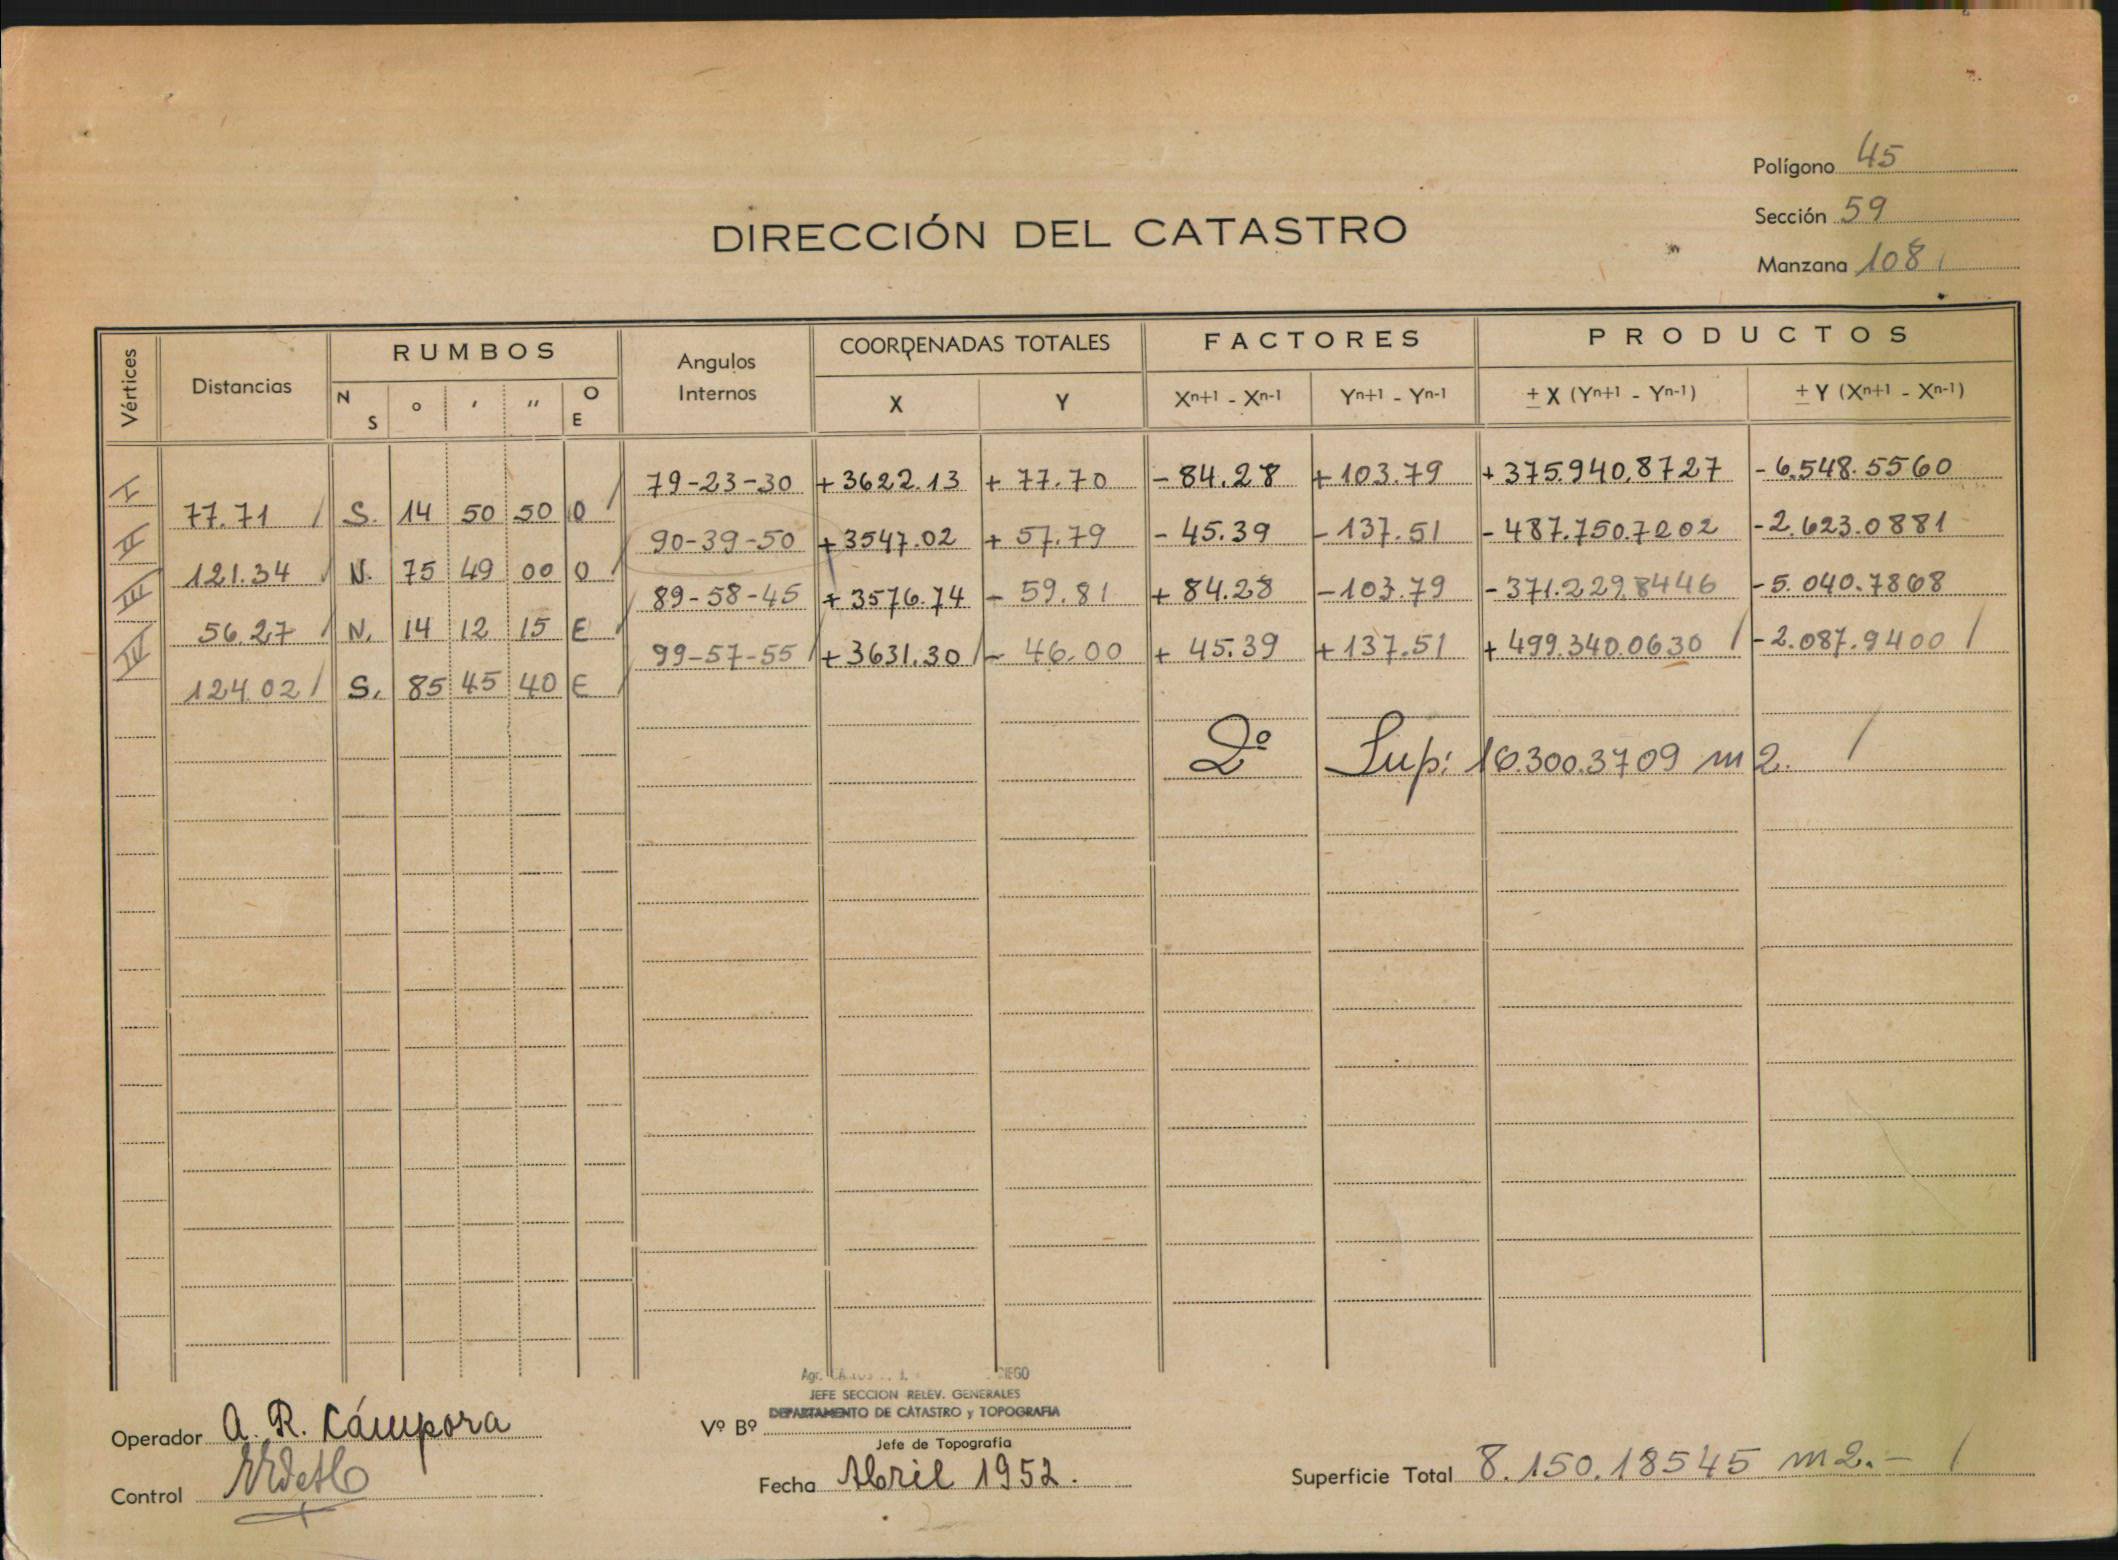 Polígono 45
Sección 59
Manzana 108
DIRECCIÓN DEL CATASTRO
Vértices Distancias RUMBOS N S ° ′ ″ O E Angulos Internos COORDENADAS TOTALES X Y FACTORES Xn+1 - Xn-1 Yn+1 - Yn-1 PRODUCTOS ± X (Yn+1 - Yn-1) ± Y (Xn+1 - Xn-1)
I 79-23-30 +3622.13 + 77.70 - 84.28 +103.79 +375.940.8727 -6.548.5560
77.71 S. 14 50 50 O
II 90-39-50 +3547.02 + 57.79 - 45.39 -137.51 -487.750.7202 -2.623.0881
121.34 N. 75 49 00 O
III 89-58-45 +3576.74 - 59.81 + 84.28 -103.79 -371.229.8446 -5.040.7868
56.27 N. 14 12 15 E
IV 99-57-55 +3631.30 - 46.00 + 45.39 +137.51 +499.340.0630 -2.087.9400
124.02 S. 85 45 40 E
2º Sup: 16.300.3709 m2.
JEFE SECCION RELEV. GENERALES
DEPARTAMENTO DE CATASTRO y TOPOGRAFIA
Operador A. R. Cámpora
Vº Bº
Jefe de Topografía
Control
Fecha Abril 1952.
Superficie Total 8.150.18545 m2.-